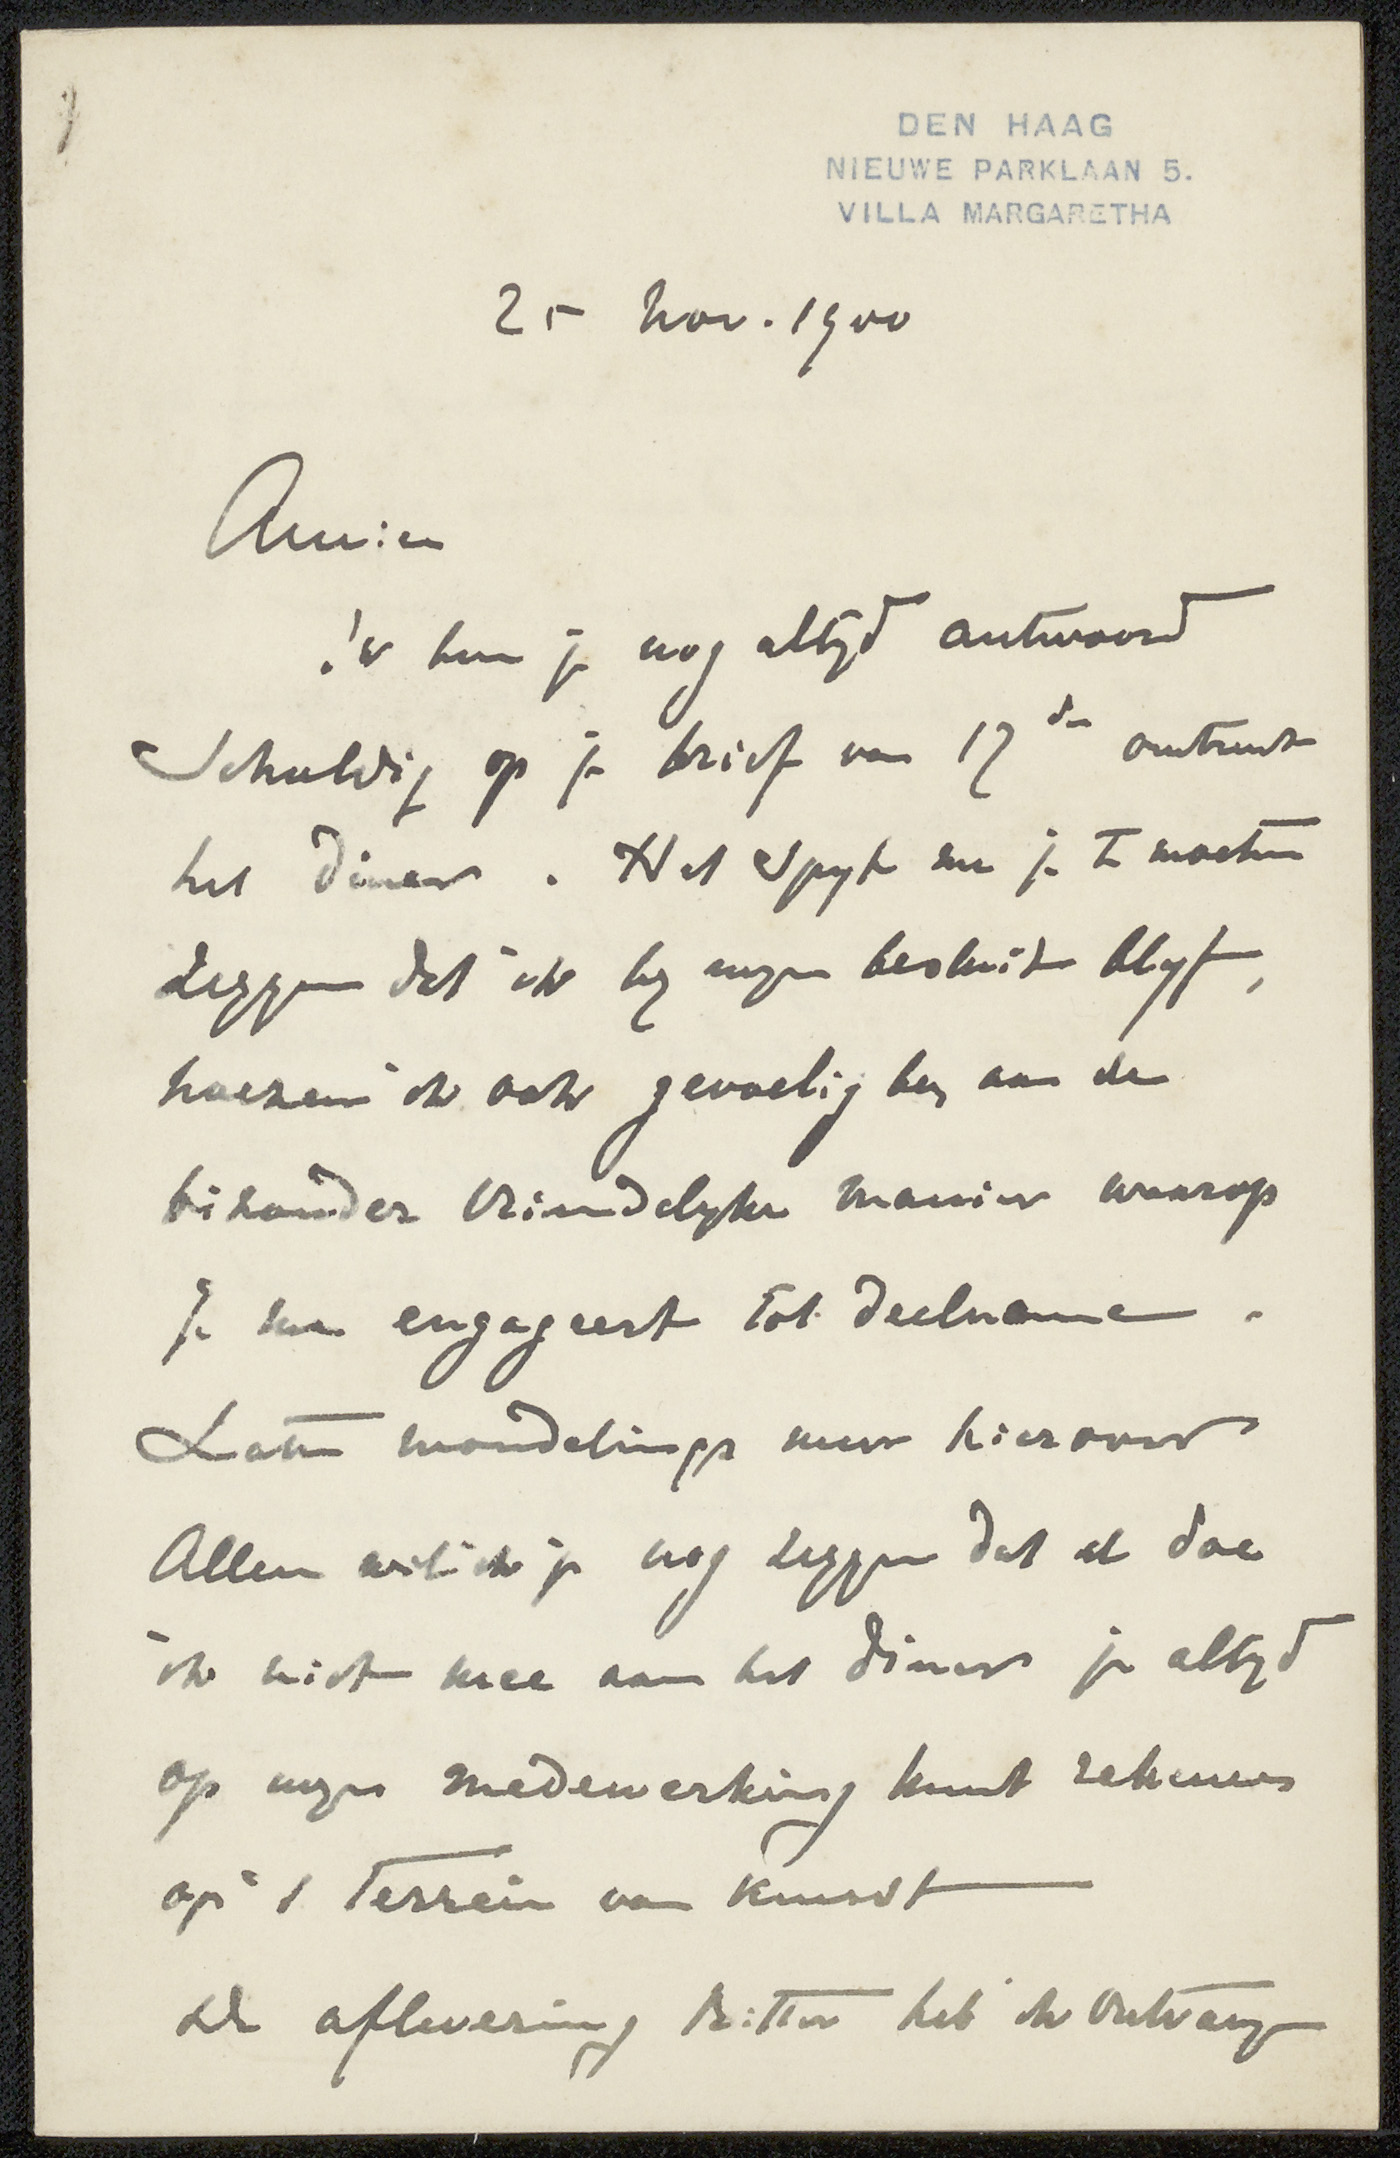 DEN HAAG
NIEUWE PARKLAAN 5.
VILLA MARGARETHA
25 Nov. 1900
Amice
ik ben je nog altyd antwoord
schuldig op je brief van 17den omtrent
het diner. Het spyt me je te moeten
zeggen dat ik by myn besluit blyf,
hoezeer ik ook gevoelig ben aan de
bizonder vriendelyke manier waarop
je me engageert tot deelname.
Later mondelings meer hierover
Alleen wil ik je nog zeggen dat al doe
ik niet mee aan het diner je altyd
op myn medewerking kunt rekenen
op 't terrein van kunst
De aflevering Ritter heb ik ontvangen